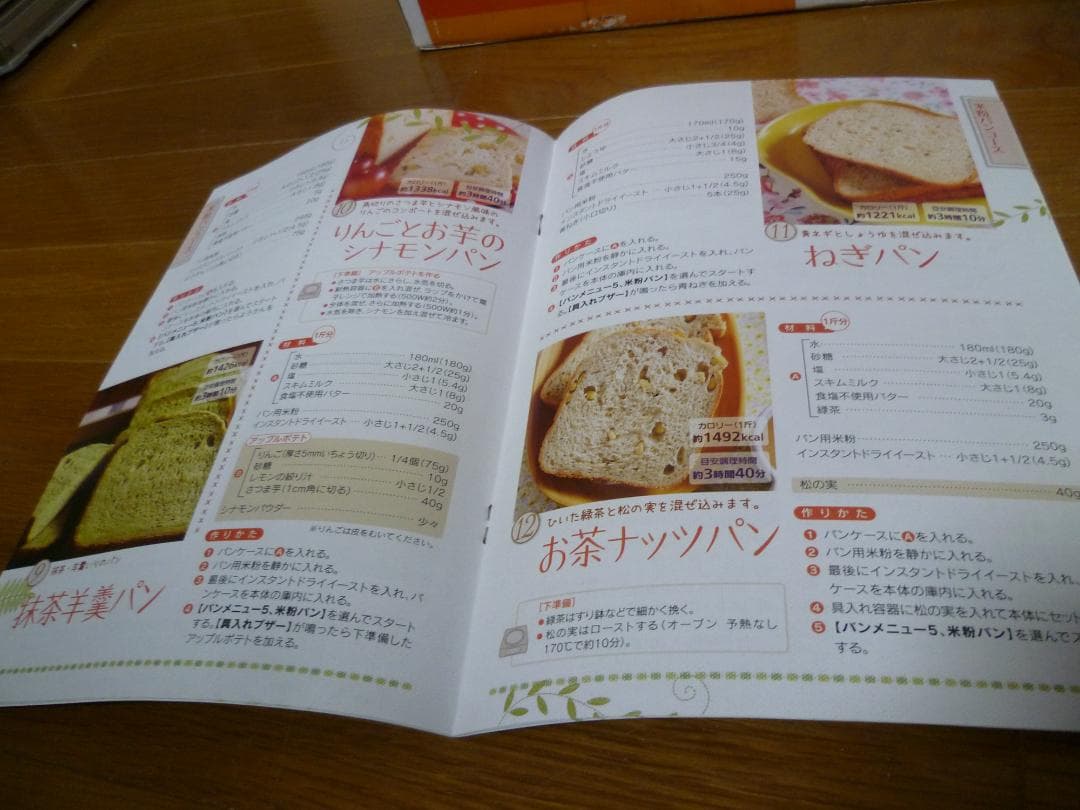 カロリー(1斤)
約1426kcal
目安調理時間
約3時間10分
9
抹茶・羊羹いりのパン
抹茶羊羹パン
カロリー(1斤)
約1338kcal
目安調理時間
約3時間40分
10
角切りのさつま芋とシナモン風味の
りんごのコンポートを混ぜ込みます。
りんごとお芋の
シナモンパン
[下準備] アップルポテトを作る
●さつま芋は水にさらし、水気を切る。
●耐熱容器にBを入れ混ぜ、ラップをかけて電
子レンジで加熱する(500W約2分)。
●全体を混ぜ、さらに加熱する(500W約1分)。
●水気を除き、シナモンを加え混ぜて冷ます。
材料 1斤分
A
水 180ml(180g)
砂糖 大さじ2+1/2(25g)
塩 小さじ1(5.4g)
スキムミルク 大さじ1(8g)
食塩不使用バター 20g
パン用米粉 250g
インスタントドライイースト 小さじ1+1/2(4.5g)
アップルポテト
B
りんご(厚さ5mmいちょう切り) 1/4個(75g)
砂糖 10g
レモンの絞り汁 小さじ1/2
さつま芋(1cm角に切る) 40g
シナモンパウダー 少々
※りんごは皮をむいてください。
作りかた
1 パンケースにAを入れる。
2 パン用米粉を静かに入れる。
3 最後にインスタントドライイーストを入れ、パ
ンケースを本体の庫内に入れる。
4 【パンメニュー5、米粉パン】を選んでスタート
する。【具入れブザー】が鳴ったら下準備した
アップルポテトを加える。
1斤分
水 170ml(170g)
しょうゆ 10g
砂糖 大さじ2+1/2(25g)
塩 小さじ3/4(4g)
スキムミルク 大さじ1(8g)
食塩不使用バター 15g
パン用米粉 250g
インスタントドライイースト 小さじ1+1/2(4.5g)
青ねぎ(小口切り) 5本(25g)
作りかた
1 パンケースにAを入れる。
2 パン用米粉を静かに入れる。
3 最後にインスタントドライイーストを入れ、パン
ケースを本体の庫内に入れる。
4 【パンメニュー5、米粉パン】を選んでスタートす
る。【具入れブザー】が鳴ったら青ねぎを加える。
カロリー(1斤)
約1221kcal
目安調理時間
約3時間10分
11
青ネギとしょうゆを混ぜ込みます。
ねぎパン
カロリー(1斤)
約1492kcal
目安調理時間
約3時間40分
12
ひいた緑茶と松の実を混ぜ込みます。
お茶ナッツパン
[下準備]
●緑茶はすり鉢などで細かく挽く。
●松の実はローストする(オーブン 予熱なし
170℃で約10分)。
材料 1斤分
A
水 180ml(180g)
砂糖 大さじ2+1/2(25g)
塩 小さじ1(5.4g)
スキムミルク 大さじ1(8g)
食塩不使用バター 20g
緑茶 3g
パン用米粉 250g
インスタントドライイースト 小さじ1+1/2(4.5g)
松の実 40g
作りかた
1 パンケースにAを入れる。
2 パン用米粉を静かに入れる。
3 最後にインスタントドライイーストを入れ、
ケースを本体の庫内に入れる。
4 具入れ容器に松の実を入れて本体にセット
5 【パンメニュー5、米粉パン】を選んでス
する。